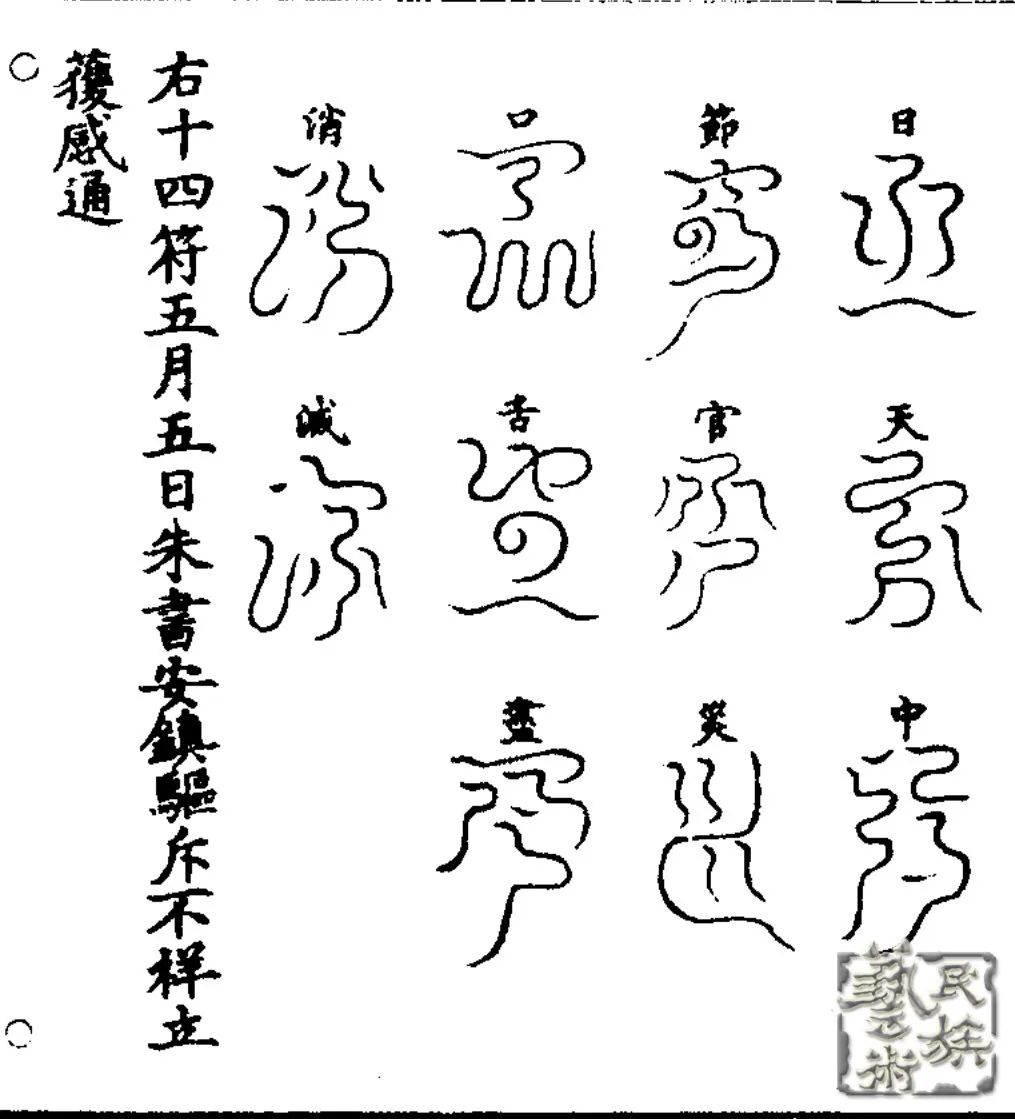 日天中
節官災
口舌盡
消滅
右十四符五月五日朱書安鎮驅斥不祥立
獲感通
民族
藝術